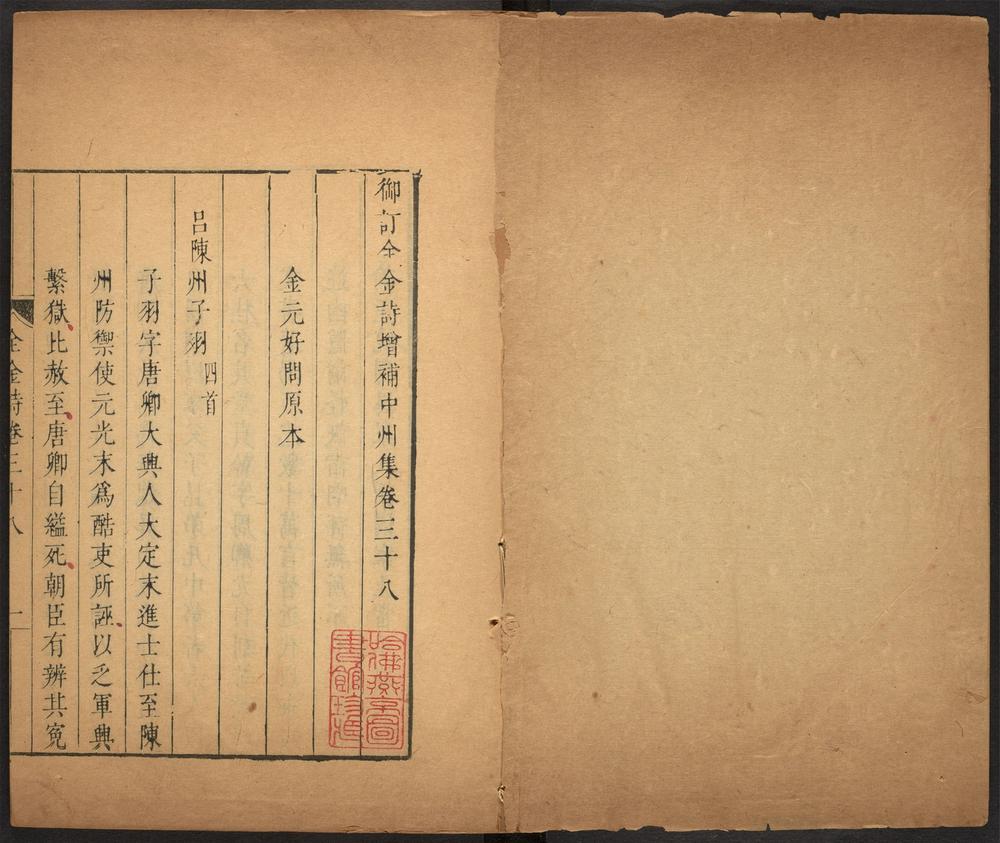 御訂全金詩增補中州集卷三十八
金元好問原本
呂陳州子羽 四首
子羽字唐卿大興人大定末進士仕至陳
州防禦使元光末爲酷吏所誣以乏軍興
繫獄比赦至唐卿自縊死朝臣有辨其寃
全金詩卷三十八 一
哈佛燕京圖
書館珍藏